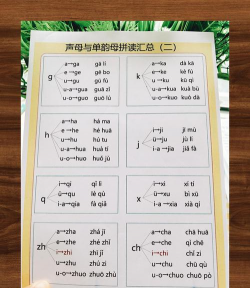 声母与单韵母拼读汇总（二）
g
a→ga gā lí
e→ge gē bo
u→gu gū li
u-a→gua guā zǐ
u-o→guo guǒ zi
k
a→ka dǎ kǎ
e→ke kè fú
u→ku kù qì
u-a→kua kuā bù
u-o→kuo kuò dà
h
a→ha há ma
e→he hé huā
u→hu hú li
u-a→hua huà jù
u-o→huo huǒ jù
j
i→ji jī mù
ü→ju jù lí
i-a→jia jiā fǎ
q
i→qi qǐ lì
ü→qu lè qù
i-a→qia fà qiǎ
x
i→xi xī tí
ü→xu bì xū
i-a→xia xià qí
zh
a→zha zhá jī
e→zhe zhé zhǐ
i→zhi zhī jǐ
u→zhu zhū zi
u-o→zhuo zhuō zhù
ch
a→cha chā huā
e→che qì chē
i→chi chǐ zi
u→chu chū zì
u-o→chuo chuō pò